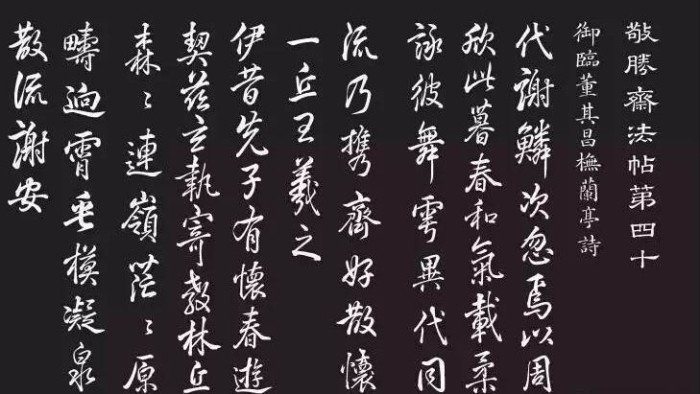 敬勝齋法帖第四十
御臨董其昌橅蘭亭詩
代謝鱗次忽焉以周
欣此暮春和氣載柔
詠彼舞雩異代同
流乃携齊好散懷
一丘王羲之
伊昔先子有懷春遊
契茲言執寄敖林丘
森〻連嶺茫〻原
疇逈霄垂模凝泉
散流謝安